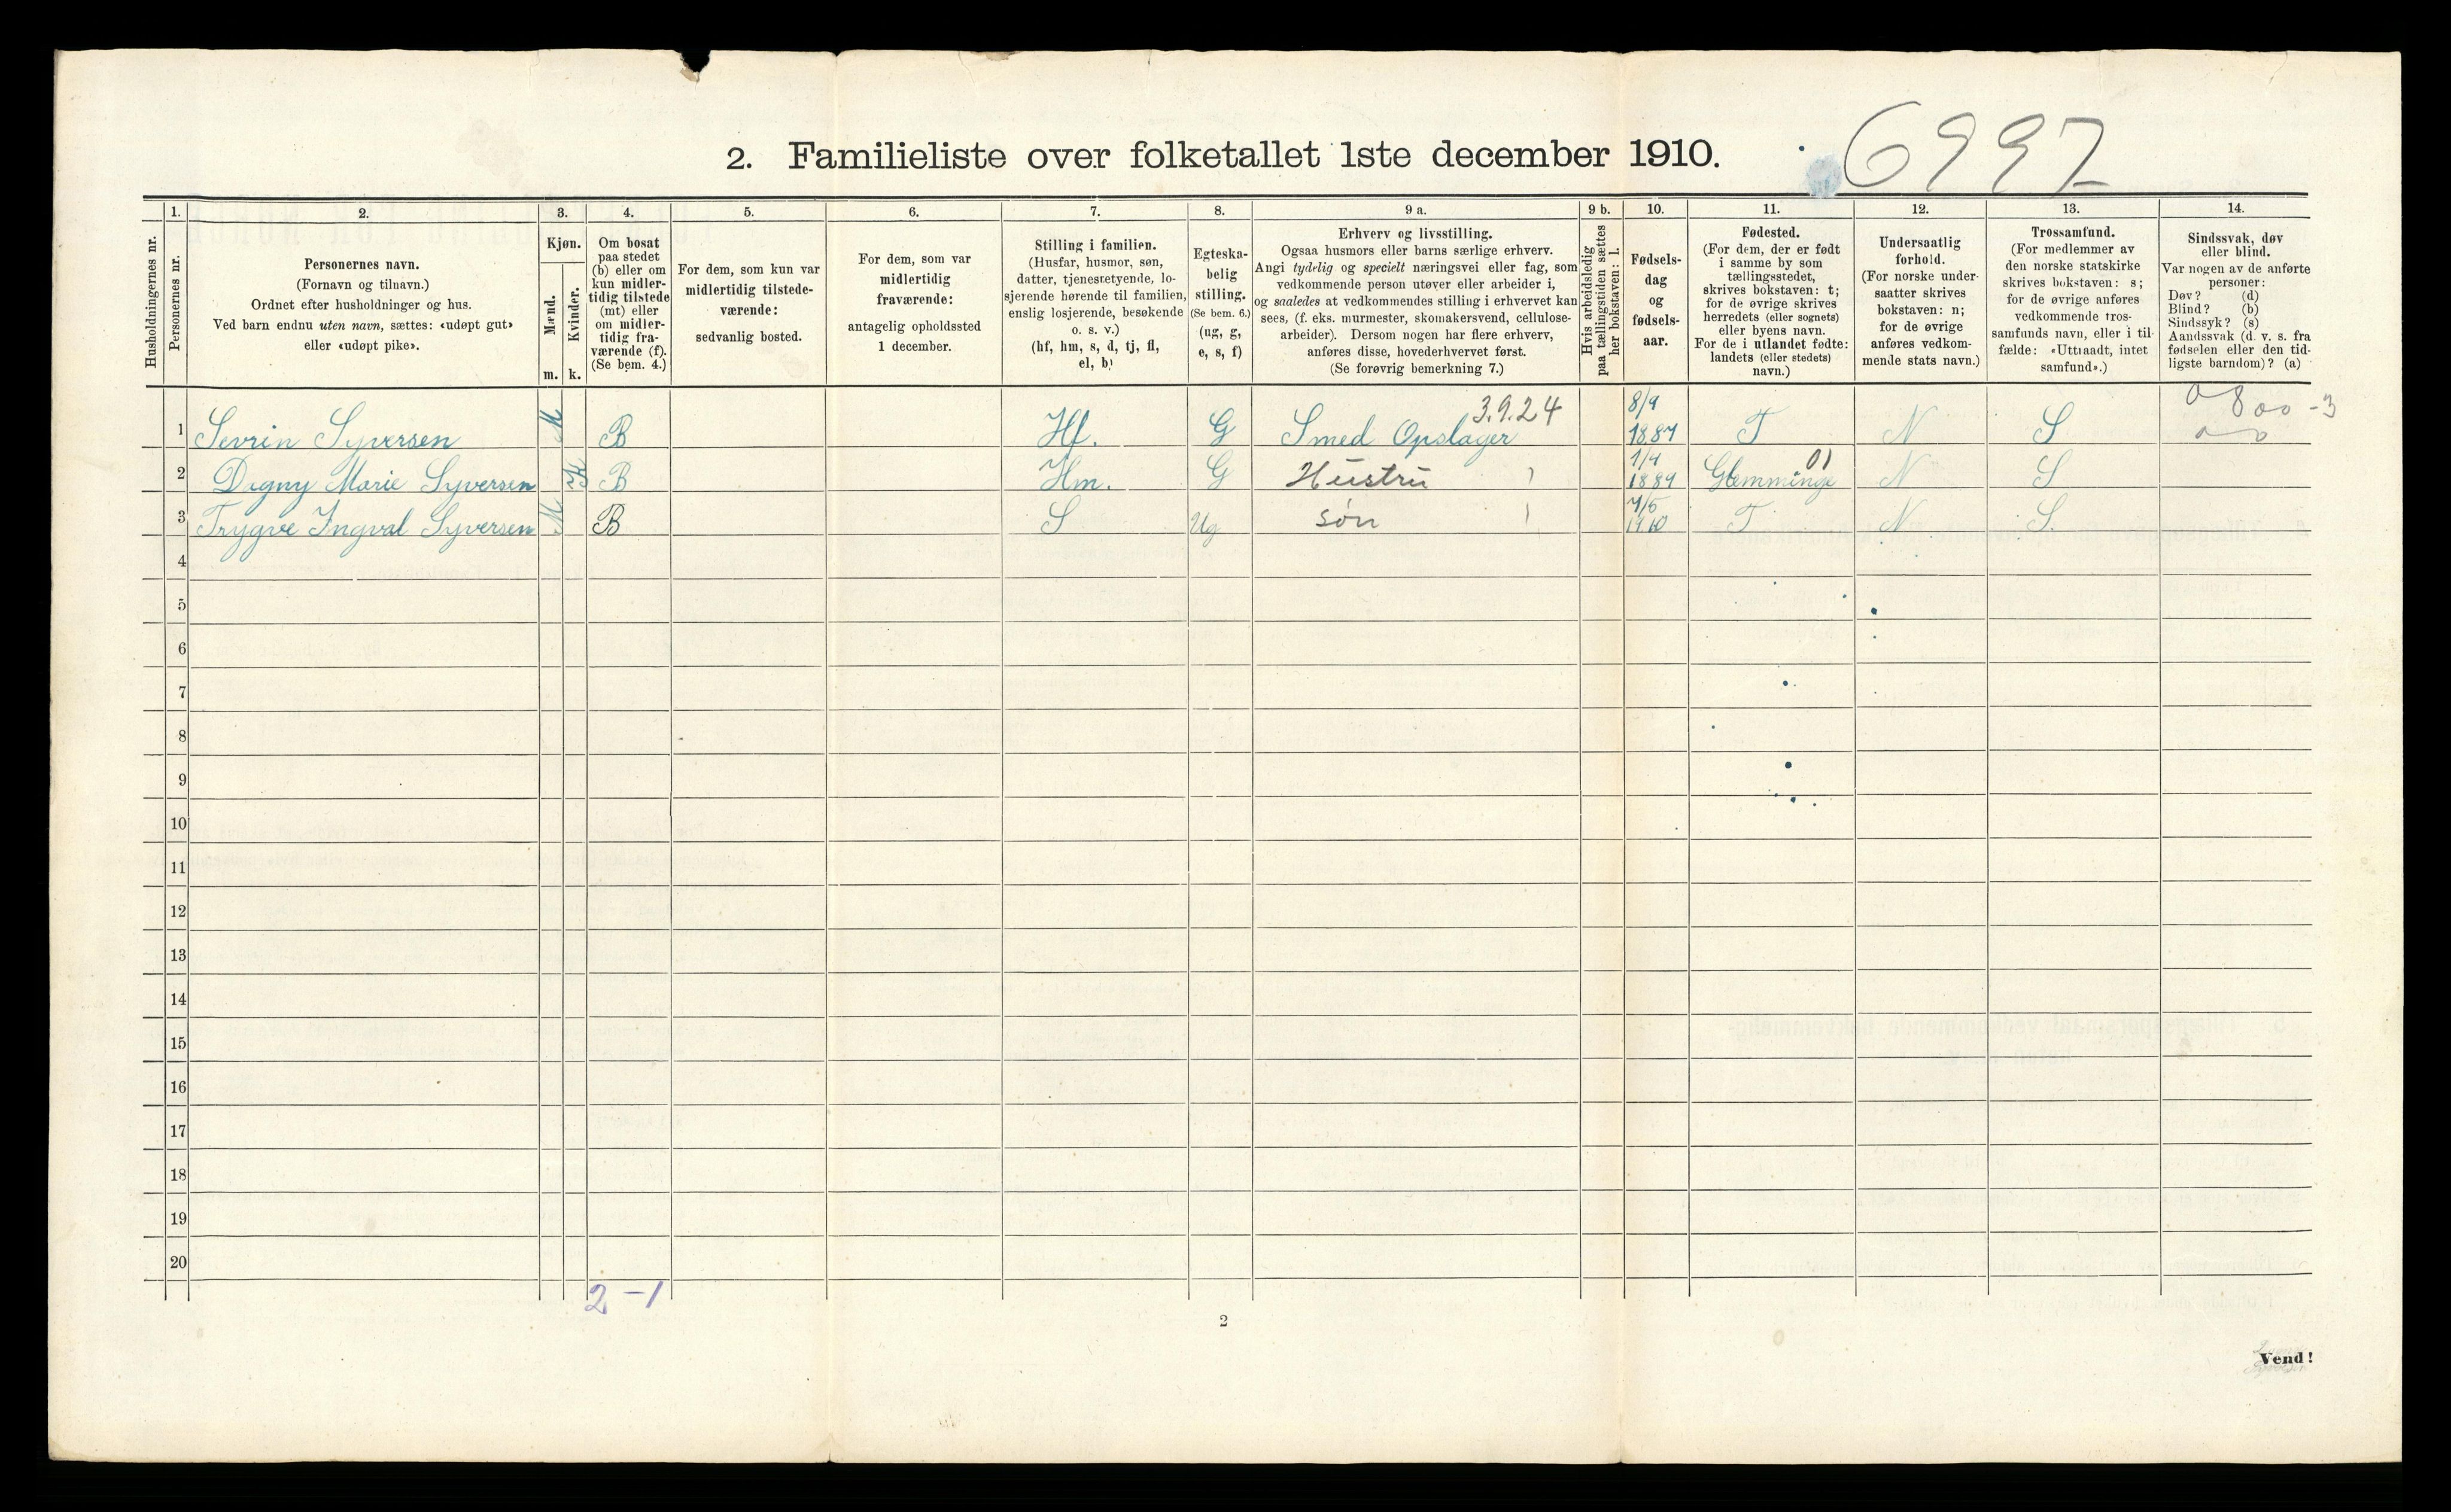 2. Familieliste over folketallet 1ste december 1910.
6997
Husholdningernes nr.
1.
Personernes nr.
2.
Personernes navn.
(Fornavn og tilnavn.)
Ordnet efter husholdninger og hus.
Ved barn endnu uten navn, sættes: «udøpt gut»
eller «udøpt pike».
3.
Kjøn.
Mænd.
Kvinder.
m.
k.
4.
Om bosat
paa stedet
(b) eller om
kun midler-
tidig tilstede
(mt) eller
om midler-
tidig fra-
værende (f).
(Se bem. 4.)
5.
For dem, som kun var
midlertidig tilstede-
værende:
sedvanlig bosted.
6.
For dem, som var
midlertidig
fraværende:
antagelig opholdssted
1 december.
7.
Stilling i familien.
(Husfar, husmor, søn,
datter, tjenestetyende, lo-
sjerende hørende til familien,
enslig losjerende, besøkende
o. s. v.)
(hf, hm, s, d, tj, fl,
el, b)
8.
Egteska-
belig
stilling.
(Se bem. 6.)
(ug, g,
e, s, f)
9 a.
Erhverv og livsstilling.
Ogsaa husmors eller barns særlige erhverv.
Angi tydelig og specielt næringsvei eller fag, som
vedkommende person utøver eller arbeider i,
og saaledes at vedkommendes stilling i erhvervet kan
sees, (f. eks. murmester, skomakersvend, cellulose-
arbeider). Dersom nogen har flere erhverv,
anføres disse, hovederhvervet først.
(Se forøvrig bemerkning 7.)
9 b.
Hvis arbeidsledig
paa tællingstiden sættes
her bokstaven: l.
10.
Fødsels-
dag
og
fødsels-
aar.
11.
Fødested.
(For dem, der er født
i samme by som
tællingsstedet,
skrives bokstaven: t;
for de øvrige skrives
herredets (eller sognets)
eller byens navn.
For de i utlandet fødte:
landets (eller stedets)
navn.)
12.
Undersaatlig
forhold.
(For norske under-
saatter skrives
bokstaven: n;
for de øvrige
anføres vedkom-
mende stats navn.)
13.
Trossamfund.
(For medlemmer av
den norske statskirke
skrives bokstaven: s;
for de øvrige anføres
vedkommende tros-
samfunds navn, eller i til-
fælde: «Uttraadt, intet
samfund».)
14.
Sindssvak, døv
eller blind.
Var nogen av de anførte
personer:
Døv? (d)
Blind? (b)
Sindssyk? (s)
Aandssvak (d. v. s. fra
fødselen eller den tid-
ligste barndom)? (a)
3.9.24
1 Sevrin Syversen M B Hf. G Smed Opslager 8/9 1887 T N S
2 Dagny Marie Syversen K B Hm. G Hustru 1/4 1889 Glemminge 01 N S
3 Trygve Ingval Syversen M B S Ug søn 4/5 1910 T N S.
4
5
6
7
8
9
10
11
12
13
14
15
16
17
18
19
20
2 - 1
2
Vend!